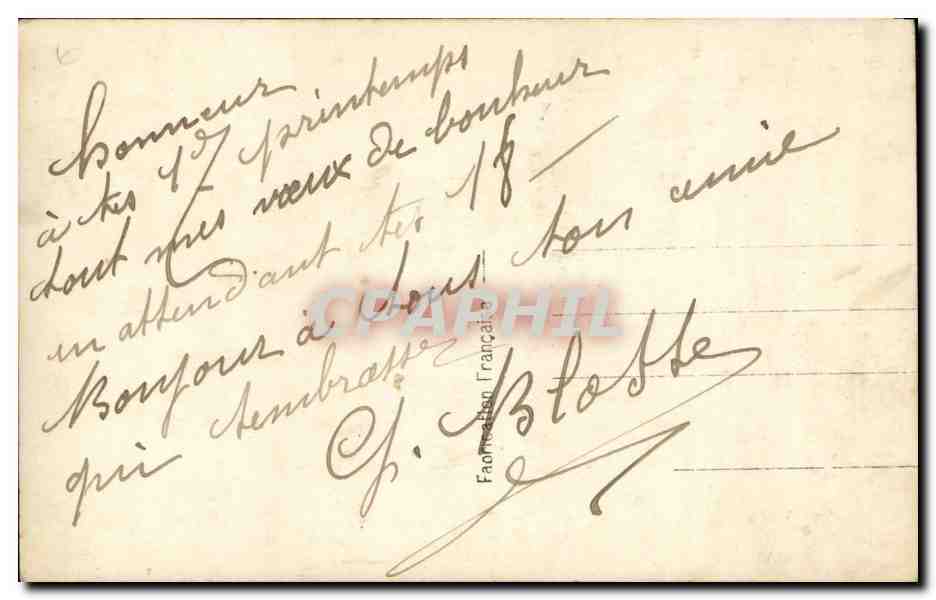 honneur
à tes 17 printemps
tout mes vœux de bonheur
en attendant tes 18 —
Bonjour à tous ton amie
qui tembrasse
G. Blotte
Fabrication Française
CPAPHIL